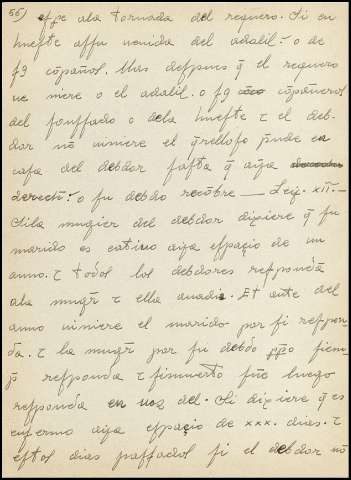 56) efpe ala tornada del requero. Si en
huefte affu uenida del adalil. o de
fg cōpañol. Mas defpues q̄ el requero
ue niere o el adalil. o fg cōpañeros
del fonffado o dela huefte τ el deb-
dor nō uiniere el q̄rellofo pnde en
cafa del debdor fafta q̄ aya
derecħ. o fu debdo recōbre — Leiẏ. xii. —
Sila mugier del debdor dixiere q̄ fu
marido es catiuo aya efpaçio de un
anno. τ todol los debdores refpondā
ala mugr τ ella anadie. Et ante del
anno uiniere el marido por fi refpon-
da. τ la mugr por fu debdo fiem-
p̄ refponda τ fimuerto fue luego
refponda en uoz del. Si dixiere q̄ es
enfermo aya efpaçio de xxx. dias. τ
eftos dias paffadol fi el debdor nō